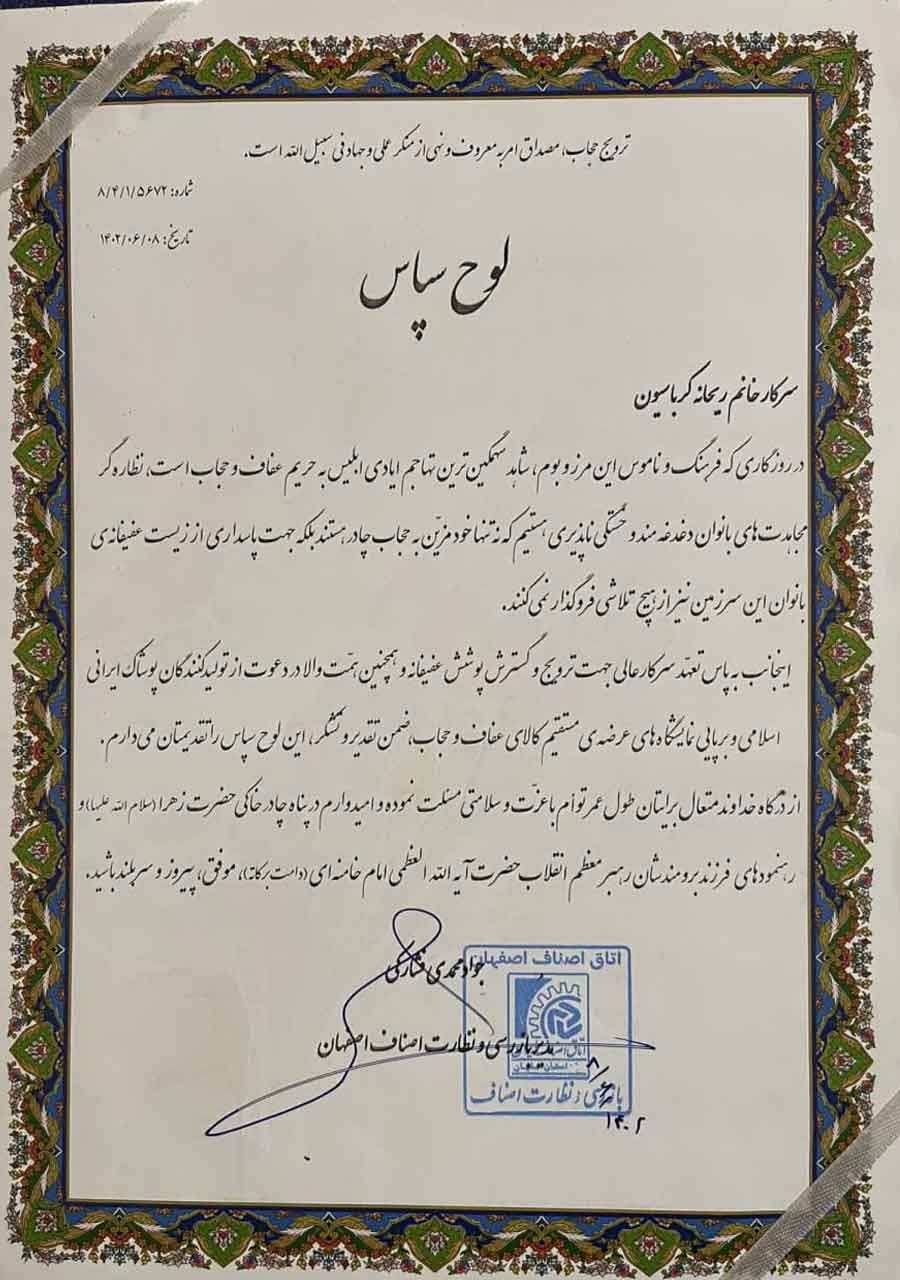 ترویج حجاب، مصداق امر به معروف و نهی از منکر عملی و جهاد فی سبیل الله است.
شماره: ۸/۴/۱/۵۶۷۲
تاریخ: ۱۴۰۲/۰۶/۰۸
لوح سپاس
سرکار خانم ریحانه کرباسیون
در روزگاری که فرهنگ و ناموس این مرز و بوم، شاهد سهمگین‌ترین تهاجم ایادی ابلیس به حریم عفاف و حجاب است، نظاره‌گر
مجاهدت‌های بانوان دغدغه‌مند و خستگی‌ناپذیری هستیم که نه تنها خود مزیّن به حجاب چادر هستند بلکه جهت پاسداری از زیست عفیفانه‌ی
بانوان این سرزمین نیز از هیچ تلاشی فروگذار نمی‌کنند.
اینجانب به پاس تعهّد سرکارعالی جهت ترویج و گسترش پوشش عفیفانه و همچنین همّت والا در دعوت از تولیدکنندگان پوشاک ایرانی
اسلامی و برپایی نمایشگاه‌های عرضه‌ی مستقیم کالای عفاف و حجاب، ضمن تقدیر و تشکر، این لوح سپاس را تقدیمتان می‌دارم.
از درگاه خداوند متعال برایتان طول عمر توأم با عزّت و سلامتی مسئلت نموده و امیدوارم در پناه چادر خاکی حضرت زهرا (سلام الله علیها) و
رهنمودهای فرزند برومندشان رهبر معظم انقلاب حضرت آیه الله العظمی امام خامنه‌ای (دامت برکاته)، موفق، پیروز و سربلند باشید.
اتاق اصناف اصفهان
جواد محمدی فشارکی
مدیر بازرسی و نظارت اصناف اصفهان
استان اصفهان
بازرسی و نظارت اصناف
۱۴۰۲